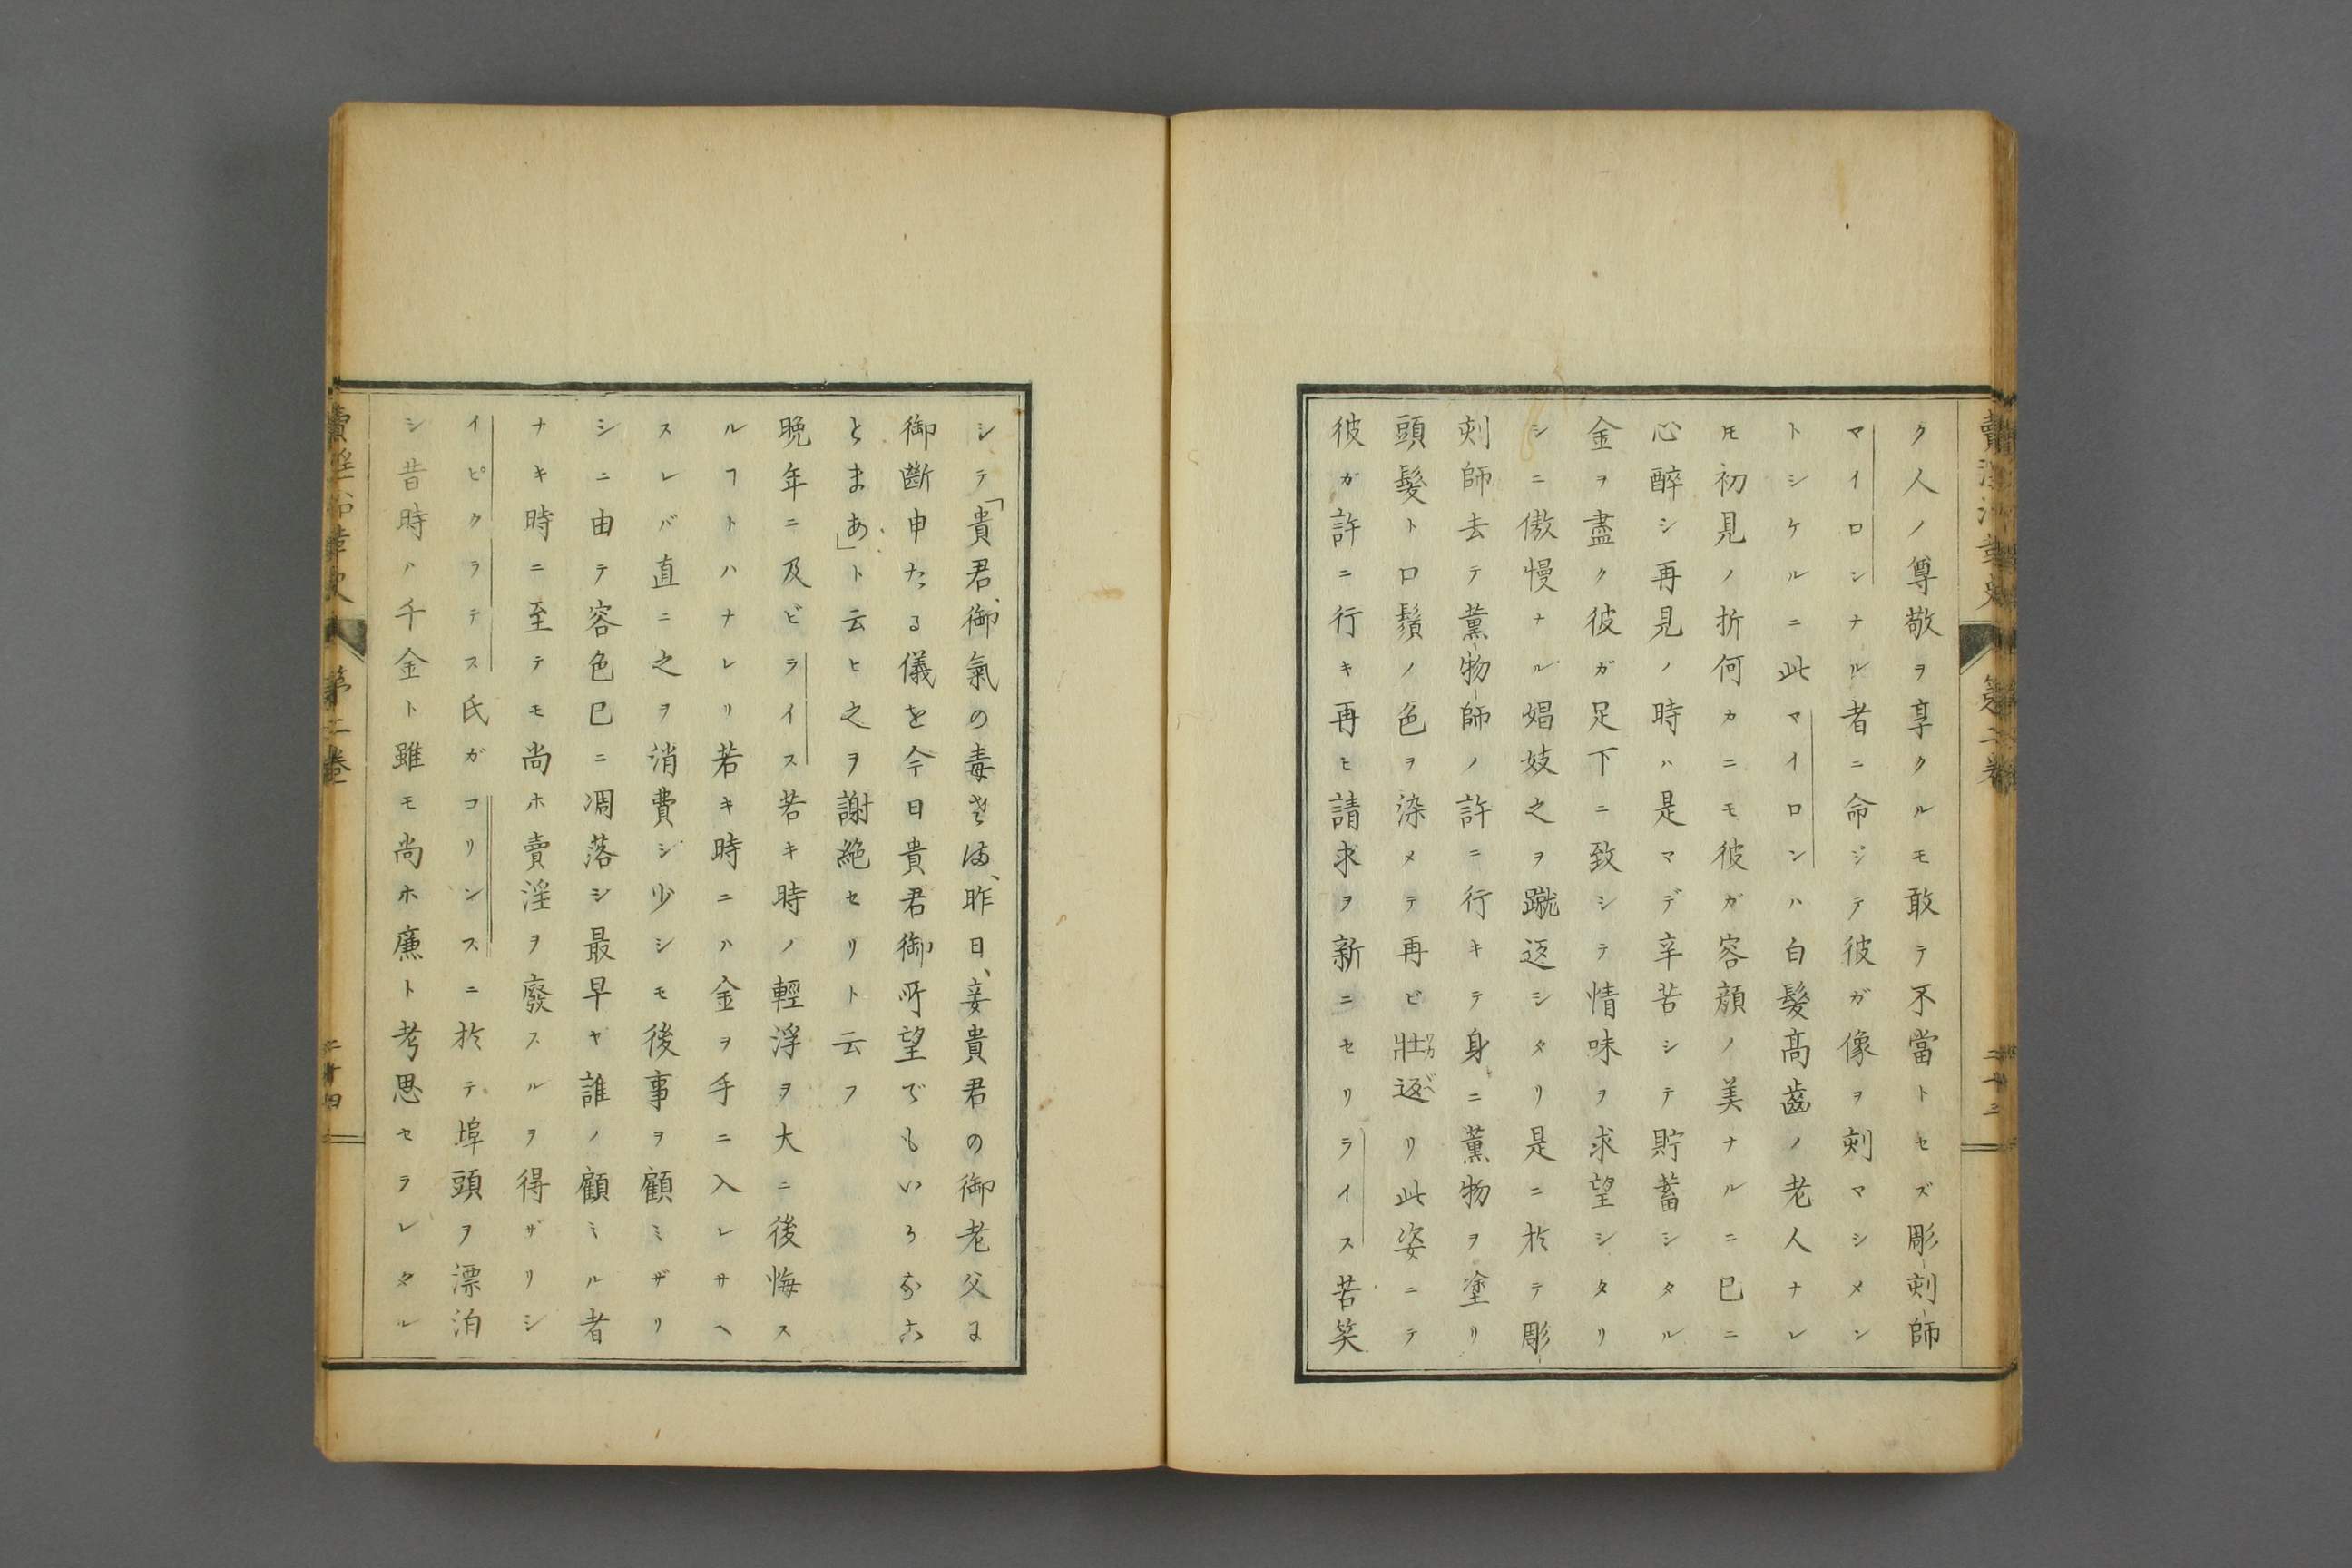 ク人ノ尊敬ヲ享クルモ敢テ不當トセズ彫刻師
マイロンナル者ニ命ジテ彼ガ像ヲ刻マシメン
トシケルニ此マイロンハ白髮高齒ノ老人ナレ
𪜈初見ノ折何カニモ彼ガ容顏ノ美ナルニ已ニ
心醉シ再見ノ時ハ是マデ辛苦シテ貯蓄シタル
金ヲ盡ク彼ガ足下ニ致シテ情味ヲ求望シタリ
シニ傲慢ナル娼妓之ヲ蹴返シタリ是ニ於テ彫
刻師去テ薫物師ノ許ニ行キテ身ニ薫物ヲ塗リ
頭髮ト口鬚ノ色ヲ染メテ再ビ壯返リ此姿ニテ
彼ガ許ニ行キ再ヒ請求ヲ新ニセリライス苦笑
賣淫沿革史 第二卷 二十三
シテ「貴君、御氣の毒さま、昨日、妾貴君の御老父に
御斷申たる儀を今日貴君御所望でもいろなこ
とまあ」ト云ヒ之ヲ謝絶セリト云フ
晩年ニ及ビライス若キ時ノ輕浮ヲ大ニ後悔ス
ルフトハナレリ若キ時ニハ金ヲ手ニ入レサヘ
スレバ直ニ之ヲ消費シ少シモ後事ヲ顧ミザリ
シニ由テ容色已ニ凋落シ最早ヤ誰ノ顧ミル者
ナキ時ニ至テモ尚ホ賣淫ヲ廢スルヲ得ザリシ
イピクラテス氏ガコリンスニ於テ埠頭ヲ漂泊
シ昔時ハ千金ト雖モ尚ホ廉ト考思セラレタル
賣淫沿革史 第二卷 二十四